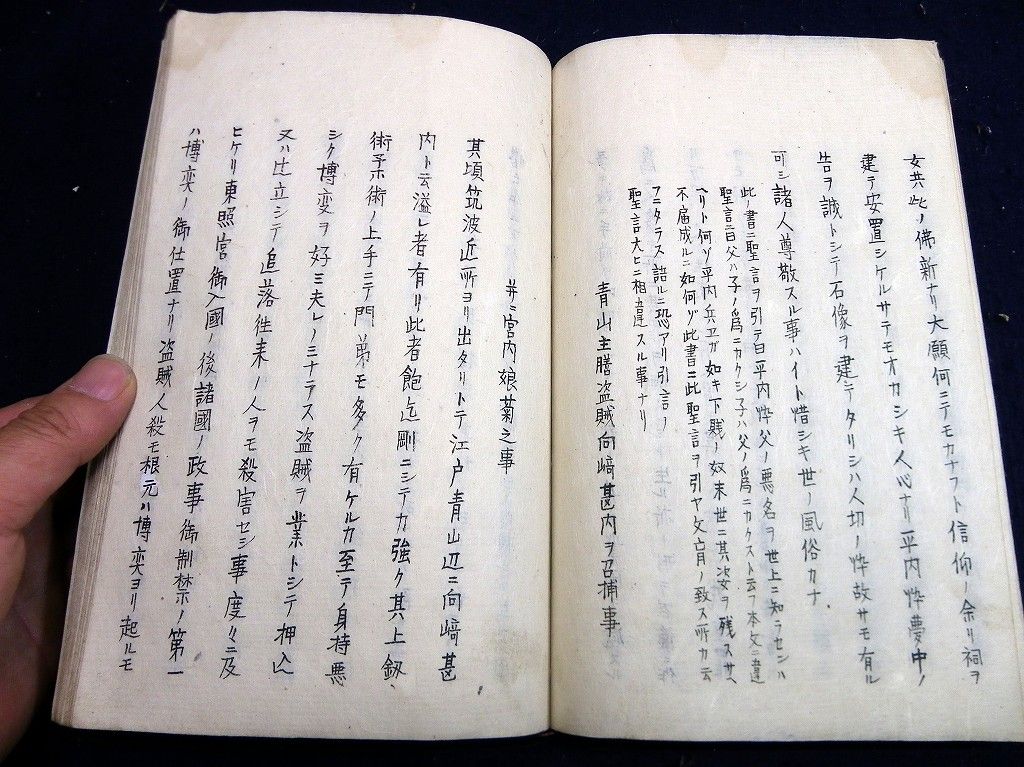 女共此ノ佛新ナリ大願何ニテモカナフト信仰ノ余リ祠ヲ
建テ安置シケルサテモオカシキ人心ナリ平内忰夢中ノ
告ヲ誠トシテ石像ヲ建テタリシハ人切ノ忰故サモ有ル
可シ諸人尊敬スル事ハイト惜シキ世ノ風俗カナ
此ノ書ニ聖言ヲ引テ曰平内忰父ノ悪名ヲ世上ニ知ラセンハ
聖言ニ曰父ハ子ノ為ニカクシ子ハ父ノ為ニカクスト云フ本文ニ違
ヘリト何ゾ平内兵卫ガ如キ下賤ノ奴末世ニ其姿ヲ残スサヘ
不届成ルニ如何ゾ此書ニ此聖言ヲ引ヤ文盲ノ致ス所カ云
フニタラス語ルニ恐アリ引言ノ
聖言大ヒニ相違スル事ナリ
青山主膳盗賊向﨑甚内ヲ召捕事
并ニ宮内娘菊之事
其頃筑波近所ヨリ出タリトテ江戸青山辺ニ向﨑甚
内ト云溢レ者有リ此者飽迄剛ニシテカ強ク其上釼
術柔術ノ上手ニテ門弟モ多ク有ケルカ至テ身持悪
シク博変ヲ好ミ夫レノミナラス盗賊ヲ業トシテ押込
又ハ辻立シテ追落往来ノ人ヲモ殺害セシ事度々ニ及
ヒケリ東照宮御入國ノ後諸國ノ政事御制禁ノ第一
ハ博奕ノ御仕置ナリ盗賊人殺モ根元ハ博奕ヨリ起ルモ